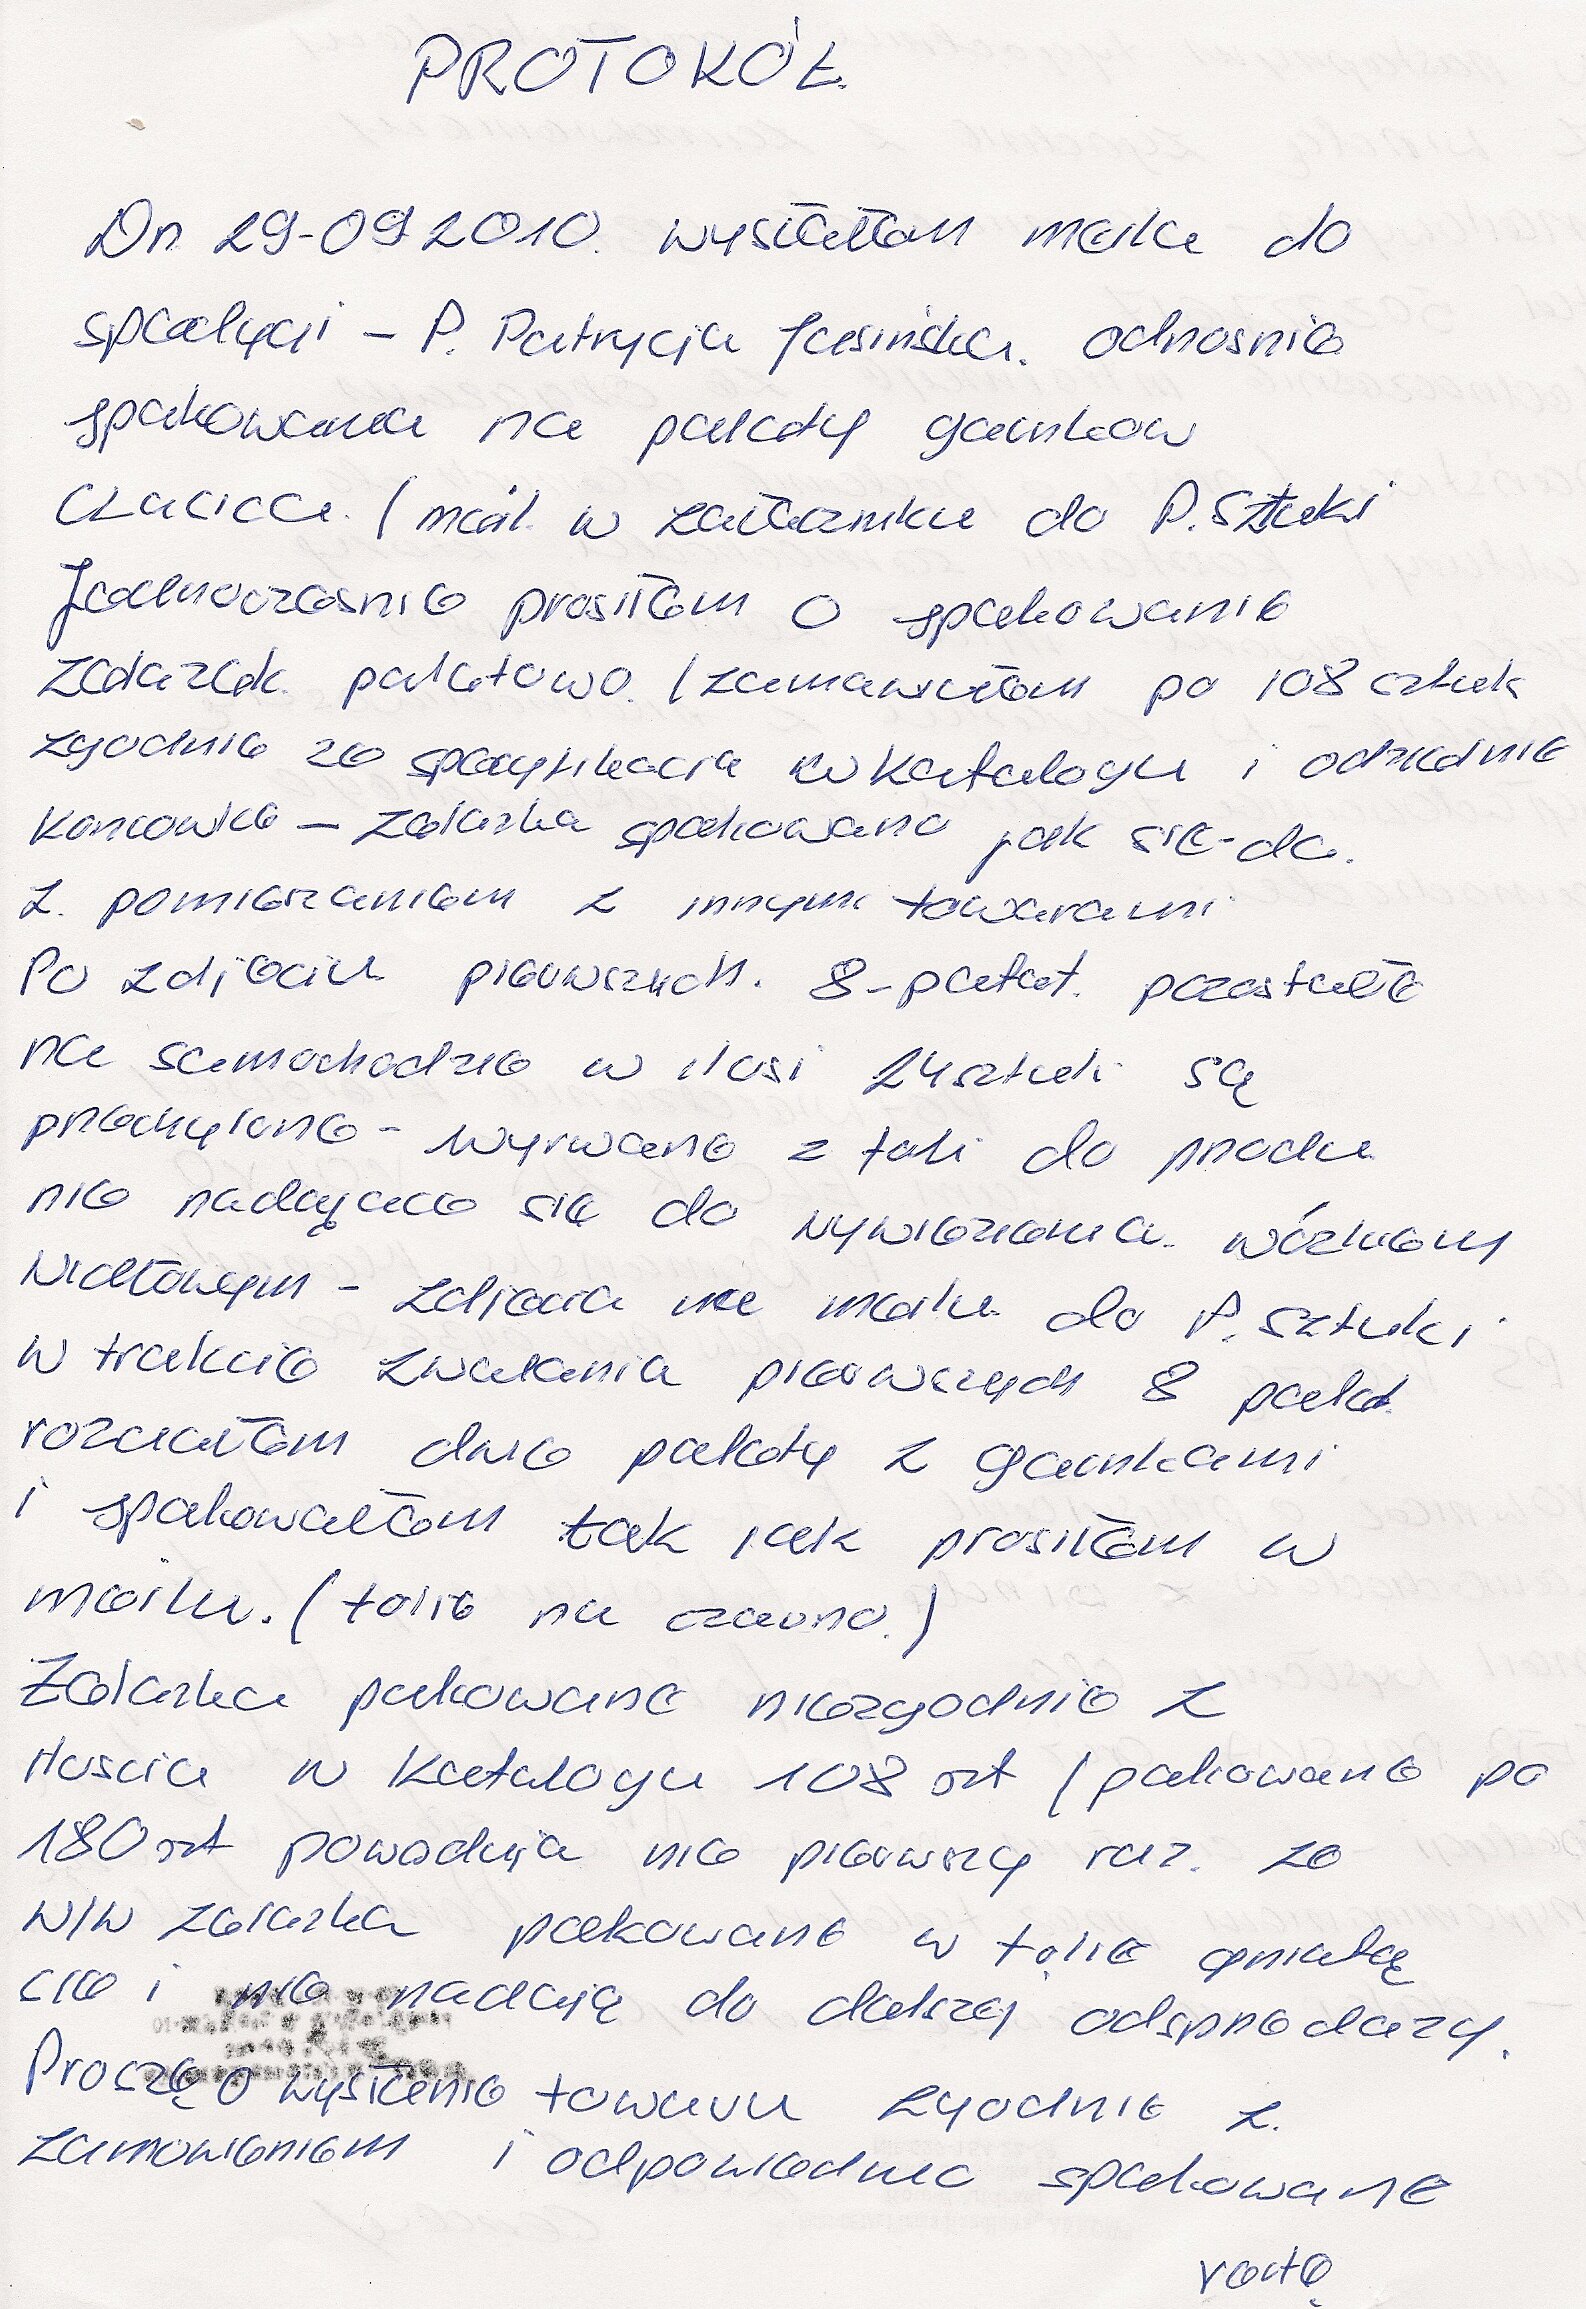 PROTOKÓŁ.
Dn 29-09 2010. wysłałam maila do
spedycji - P. Patrycja Jasińska. odnosnie
spakowania na palety garnkow
CLACICCA. (mail. w załaczniku do P. Sztuki
Jednoczesnie prosiłam o spakowanie
żelazek paletowo. (zamawiałam po 108 sztuk
zgodnie ze specyfikacia w katalogu i odrednie
koncowke - żelazka spakowano jak sie-da.
z. pomieszaniem z innymi towarami
Po zdjeciu pierwszych. 8-palet. pozostałe
na samochodzie w ilosi 24 sztuk są
przechylone - wyrwane z foli do przodu
nie nadającece się do wywiezienia. wózkiem
widłowym - zdjecia na mailu do P. Sztuki
w trakcie zwalania pierwszych 8 palet.
rozciełam dwie palety z garnkami
i spakowałam tak jak prosiłam w
mailu. (folie na czarno.)
Żelazka pakowane niezgodnie z
iloscia w katalogu 108 szt (pakowane po
180 szt powoduja nie pierwszy raz. ze
w/w żelazka pakowane w folie gniotą
sie i nie nadają do dalszej odsprzedazy.
Proszę o wysłanie towaru zgodnie z.
zamowieniem i odpowiednio spakowane